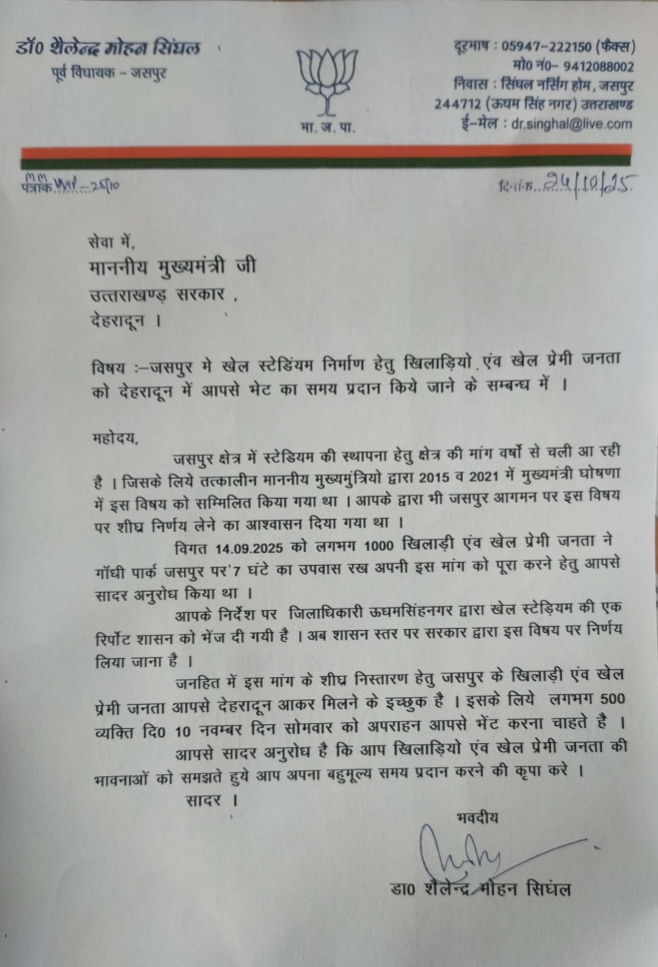 डॉ0 शैलेन्द्र मोहन सिंघल
पूर्व विधायक – जसपुर
भा. ज. पा.
दूरभाष : 05947-222150 (फैक्स)
मो0 नं0- 9412088002
निवास : सिंघल नर्सिंग होम, जसपुर
244712 (ऊधम सिंह नगर) उत्तराखण्ड
ई-मेल : dr.singhal@live.com
पत्रांक
दिनांक 24/10/25
सेवा में,
माननीय मुख्यमंत्री जी
उत्तराखण्ड़ सरकार ,
देहरादून ।
विषय :–जसपुर मे खेल स्टेडिंयम निर्माण हेतु खिलाड़ियो एंव खेल प्रेमी जनता
को देहरादून में आपसे भेट का समय प्रदान किये जाने के सम्बन्ध में ।
महोदय,
जसपुर क्षेत्र में स्टेडियम की स्थापना हेतु क्षेत्र की मांग वर्षो से चली आ रही
है । जिसके लिये तत्कालीन माननीय मुख्यमुंत्रियो द्वारा 2015 व 2021 में मुख्यमंत्री घोषणा
में इस विषय को सम्मिलित किया गया था । आपके द्वारा भी जसपुर आगमन पर इस विषय
पर शीघ्र निर्णय लेने का आश्वासन दिया गया था ।
विगत 14.09.2025 को लगभग 1000 खिलाड़ी एंव खेल प्रेमी जनता ने
गॉधी पार्क जसपुर पर 7 घंटे का उपवास रख अपनी इस मांग को पूरा करने हेतु आपसे
सादर अनुरोध किया था ।
आपके निर्देश पर जिलाधिकारी ऊधमसिंहनगर द्वारा खेल स्टेड़ियम की एक
रिर्पोट शासन को भेंज दी गयी है । अब शासन स्तर पर सरकार द्वारा इस विषय पर निर्णय
लिया जाना है ।
जनहित में इस मांग के शीघ्र निस्तारण हेतु जसपुर के खिलाड़ी एंव खेल
प्रेमी जनता आपसे देहरादून आकर मिलने के इच्छुक है । इसके लिये लगभग 500
व्यक्ति दि0 10 नवम्बर दिन सोमवार को अपराहन आपसे भेंट करना चाहते है ।
आपसे सादर अनुरोध है कि आप खिलाड़ियो एंव खेल प्रेमी जनता की
भावनाओं को समझते हुये आप अपना बहुमूल्य समय प्रदान करने की कृपा करे ।
सादर ।
भवदीय
डा0 शैलेन्द्र मोहन सिघंल